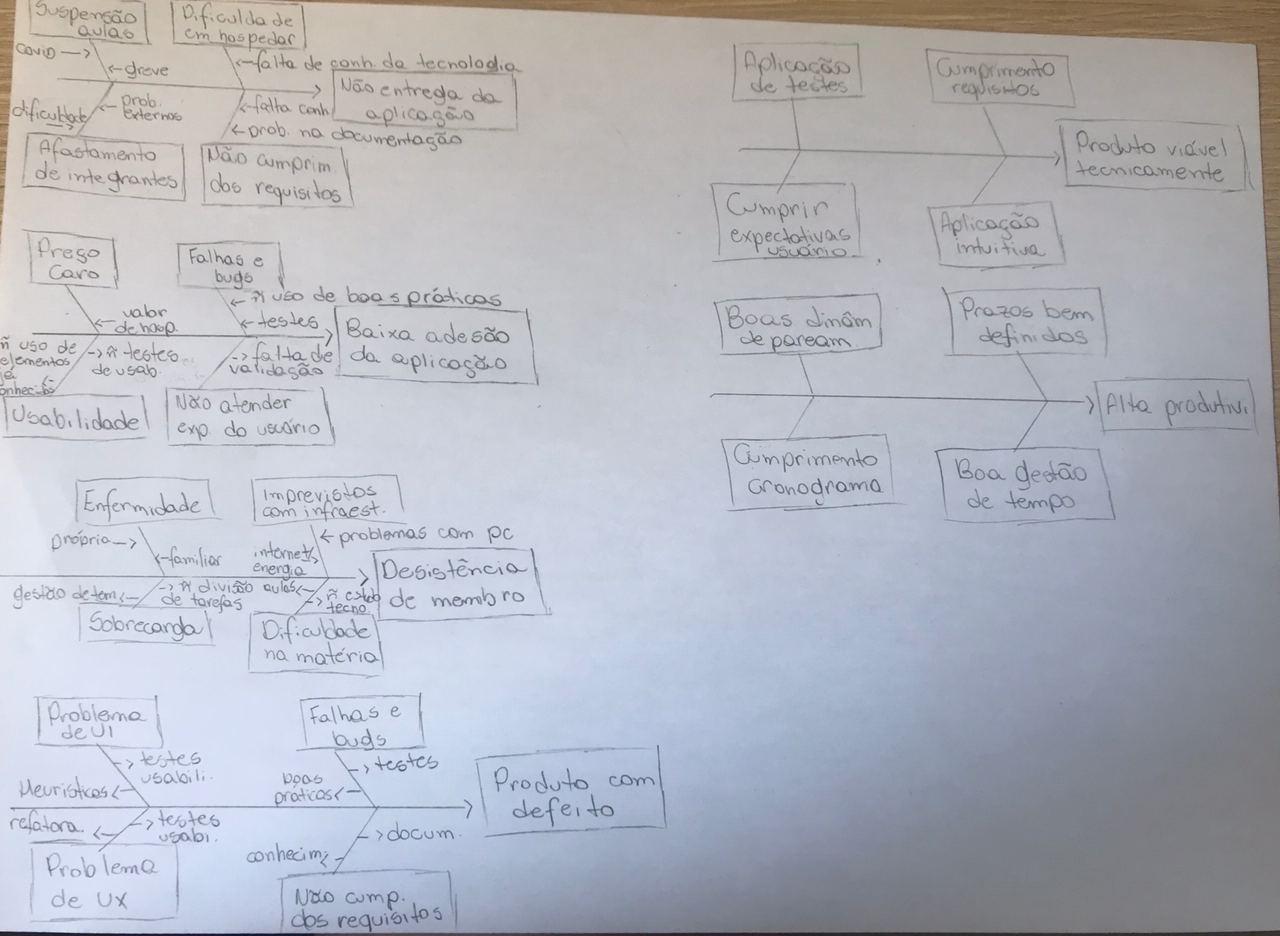 Suspensão
aulas
Dificuldade
em hospedar
covid
greve
falta de conh. da tecnologia
Não entrega da
aplicação
dificuldade
prob.
externos
falta conh
prob. na documentação
Afastamento
de integrantes
Não cumprim.
dos requisitos
Preço
Caro
Falhas e
bugs
ñ uso de boas práticas
valor
de hosp.
testes
Baixa adesão
da aplicação
ñ uso de
elementos
já
conhecidos
ñ testes
de usab.
falta de
validação
Usabilidade
Não atender
exp. do usuário
Enfermidade
Imprevistos
com infraest.
própria
familiar
internet/
energia
problemas com pc
Desistência
de membro
gestão de tem.
ñ divisão
de tarefas
aulas
ñ estab
tecno.
Sobrecarga
Dificuldade
na matéria
Problema
de UI
Falhas e
buds
testes
usabili.
Heurísticas
boas
práticas
testes
Produto com
defeito
refatora.
testes
usabi.
conhecim.
docum.
Problema
de UX
Não cump.
dos requisitos
Aplicação
de testes
Cumprimento
requisitos
Produto viável
tecnicamente
Cumprir
expectativas
usuário.
Aplicação
intuitiva
Boas dinâm
de paream.
Prazos bem
definidos
Alta produtivi
Cumprimento
Cronograma
Boa gestão
de tempo